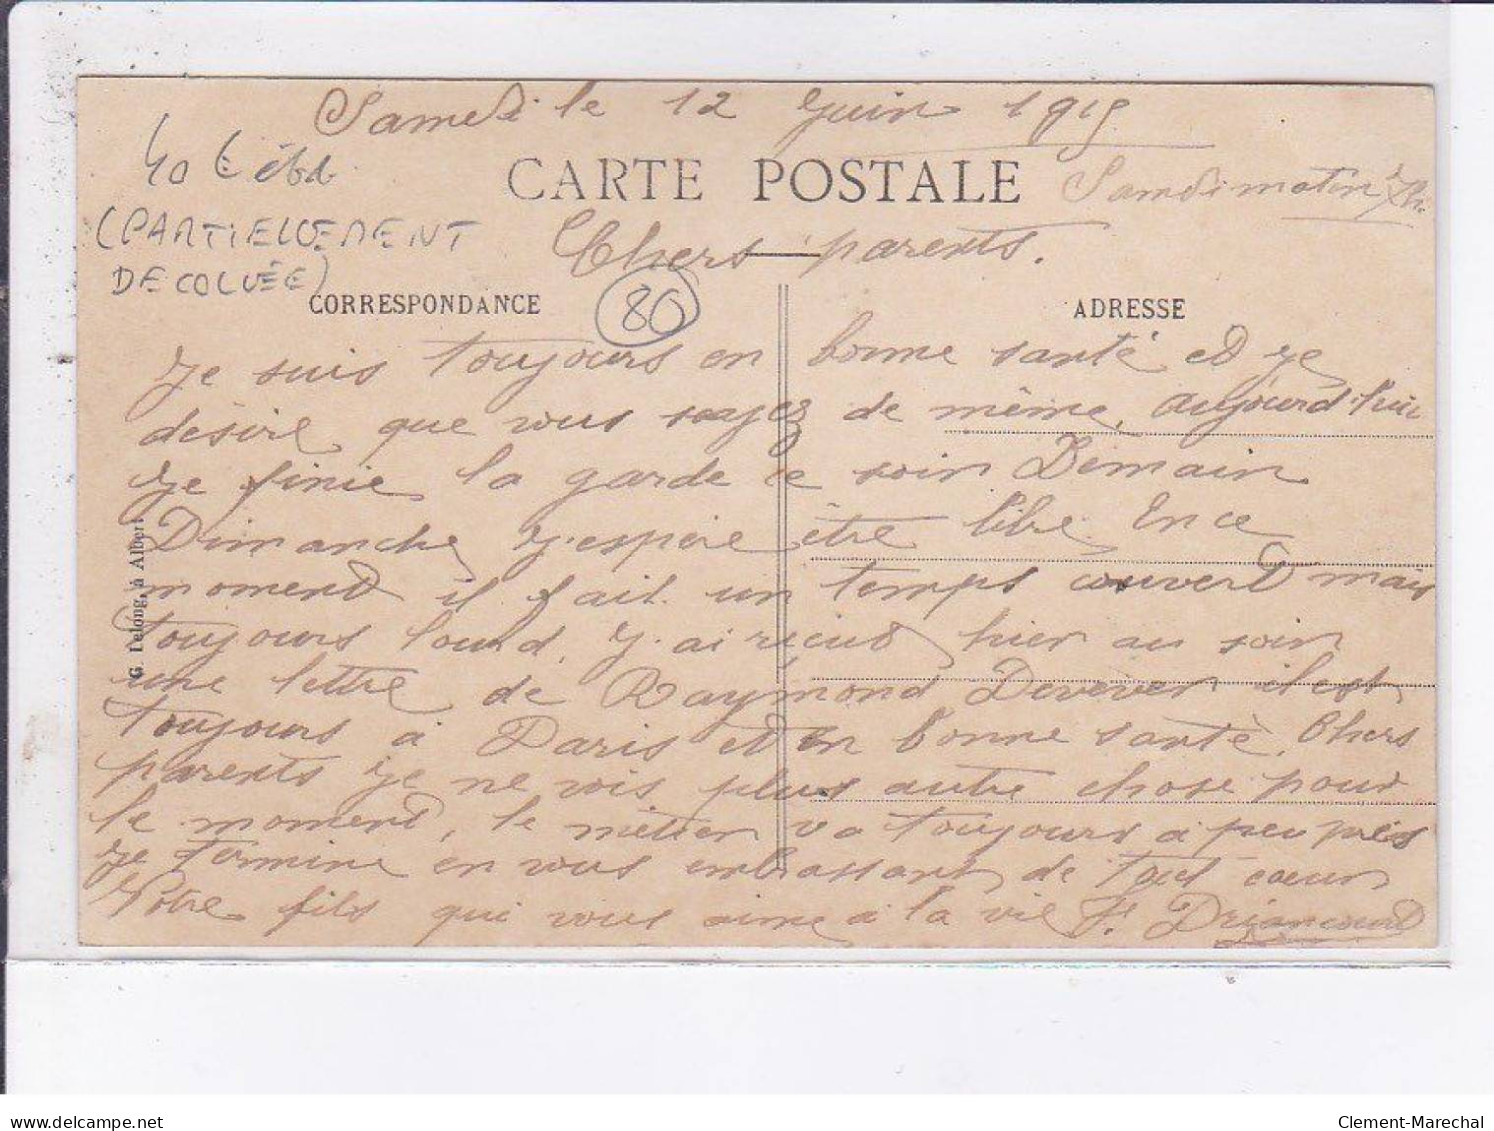 Samedi le 12 Juin 1915
40 € ébd
CARTE POSTALE
Samedi matin 7h.
(PARTIELLEMENT
DECOLLÉE)
Chers parents.
CORRESPONDANCE
80
ADRESSE
Je suis toujours en bonne santé et je
désire que vous soyez de même, aujourd'hui
je finie la garde ce soir Demain
Dimanche j'espère être libre. En ce
moment il fait un temps couvert mais
toujours lourd. J'ai reçus hier au soir
une lettre de Raymond Devever il est
toujours à Paris et en bonne santé. Chers
parents je ne vois plus autre chose pour
le moment, le métier va toujours à peu près
je termine en vous embrassant de tout cœur
Votre fils qui vous aime à la vie F. Driancourt
G. Lelong, à Albert
delcampe.net
Clement-Marechal